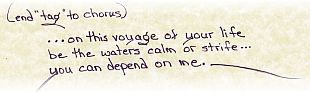 (end "tag" to chorus)
...on this voyage of your life
be the waters calm or strife...
you can depend on me.